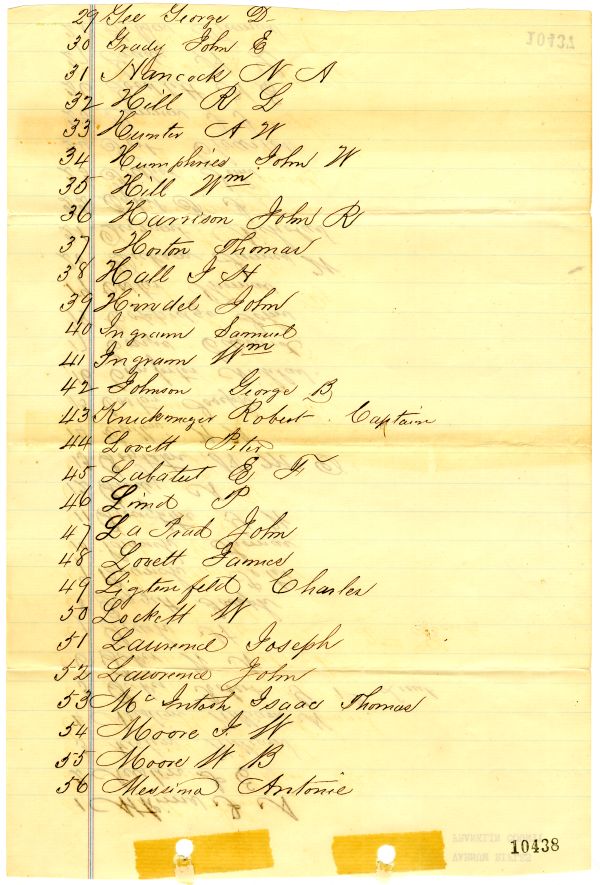 29 Gee George D
30 Grady John E
31 Hancock N A
32 Hill R G
33 Hunter A W
34 Humphries John W
35 Hill Wm
36 Harrison John R
37 Horton Thomas
38 Hall J H
39 Hindel John
40 Ingram Samuel
41 Ingram Wm
42 Johnson George B
43 Knickmeyer Robert. Captain
44 Lovett Peter
45 Labatut E F
46 Lind P
47 La Prad John
48 Lovett James
49 Ligtenfeld Charles
50 Lockett W
51 Laurence Joseph
52 Lawrence John
53 Mc Intosh Isaac Thomas
54 Moore F W
55 Moore W B
56 Messina Antonie
10438